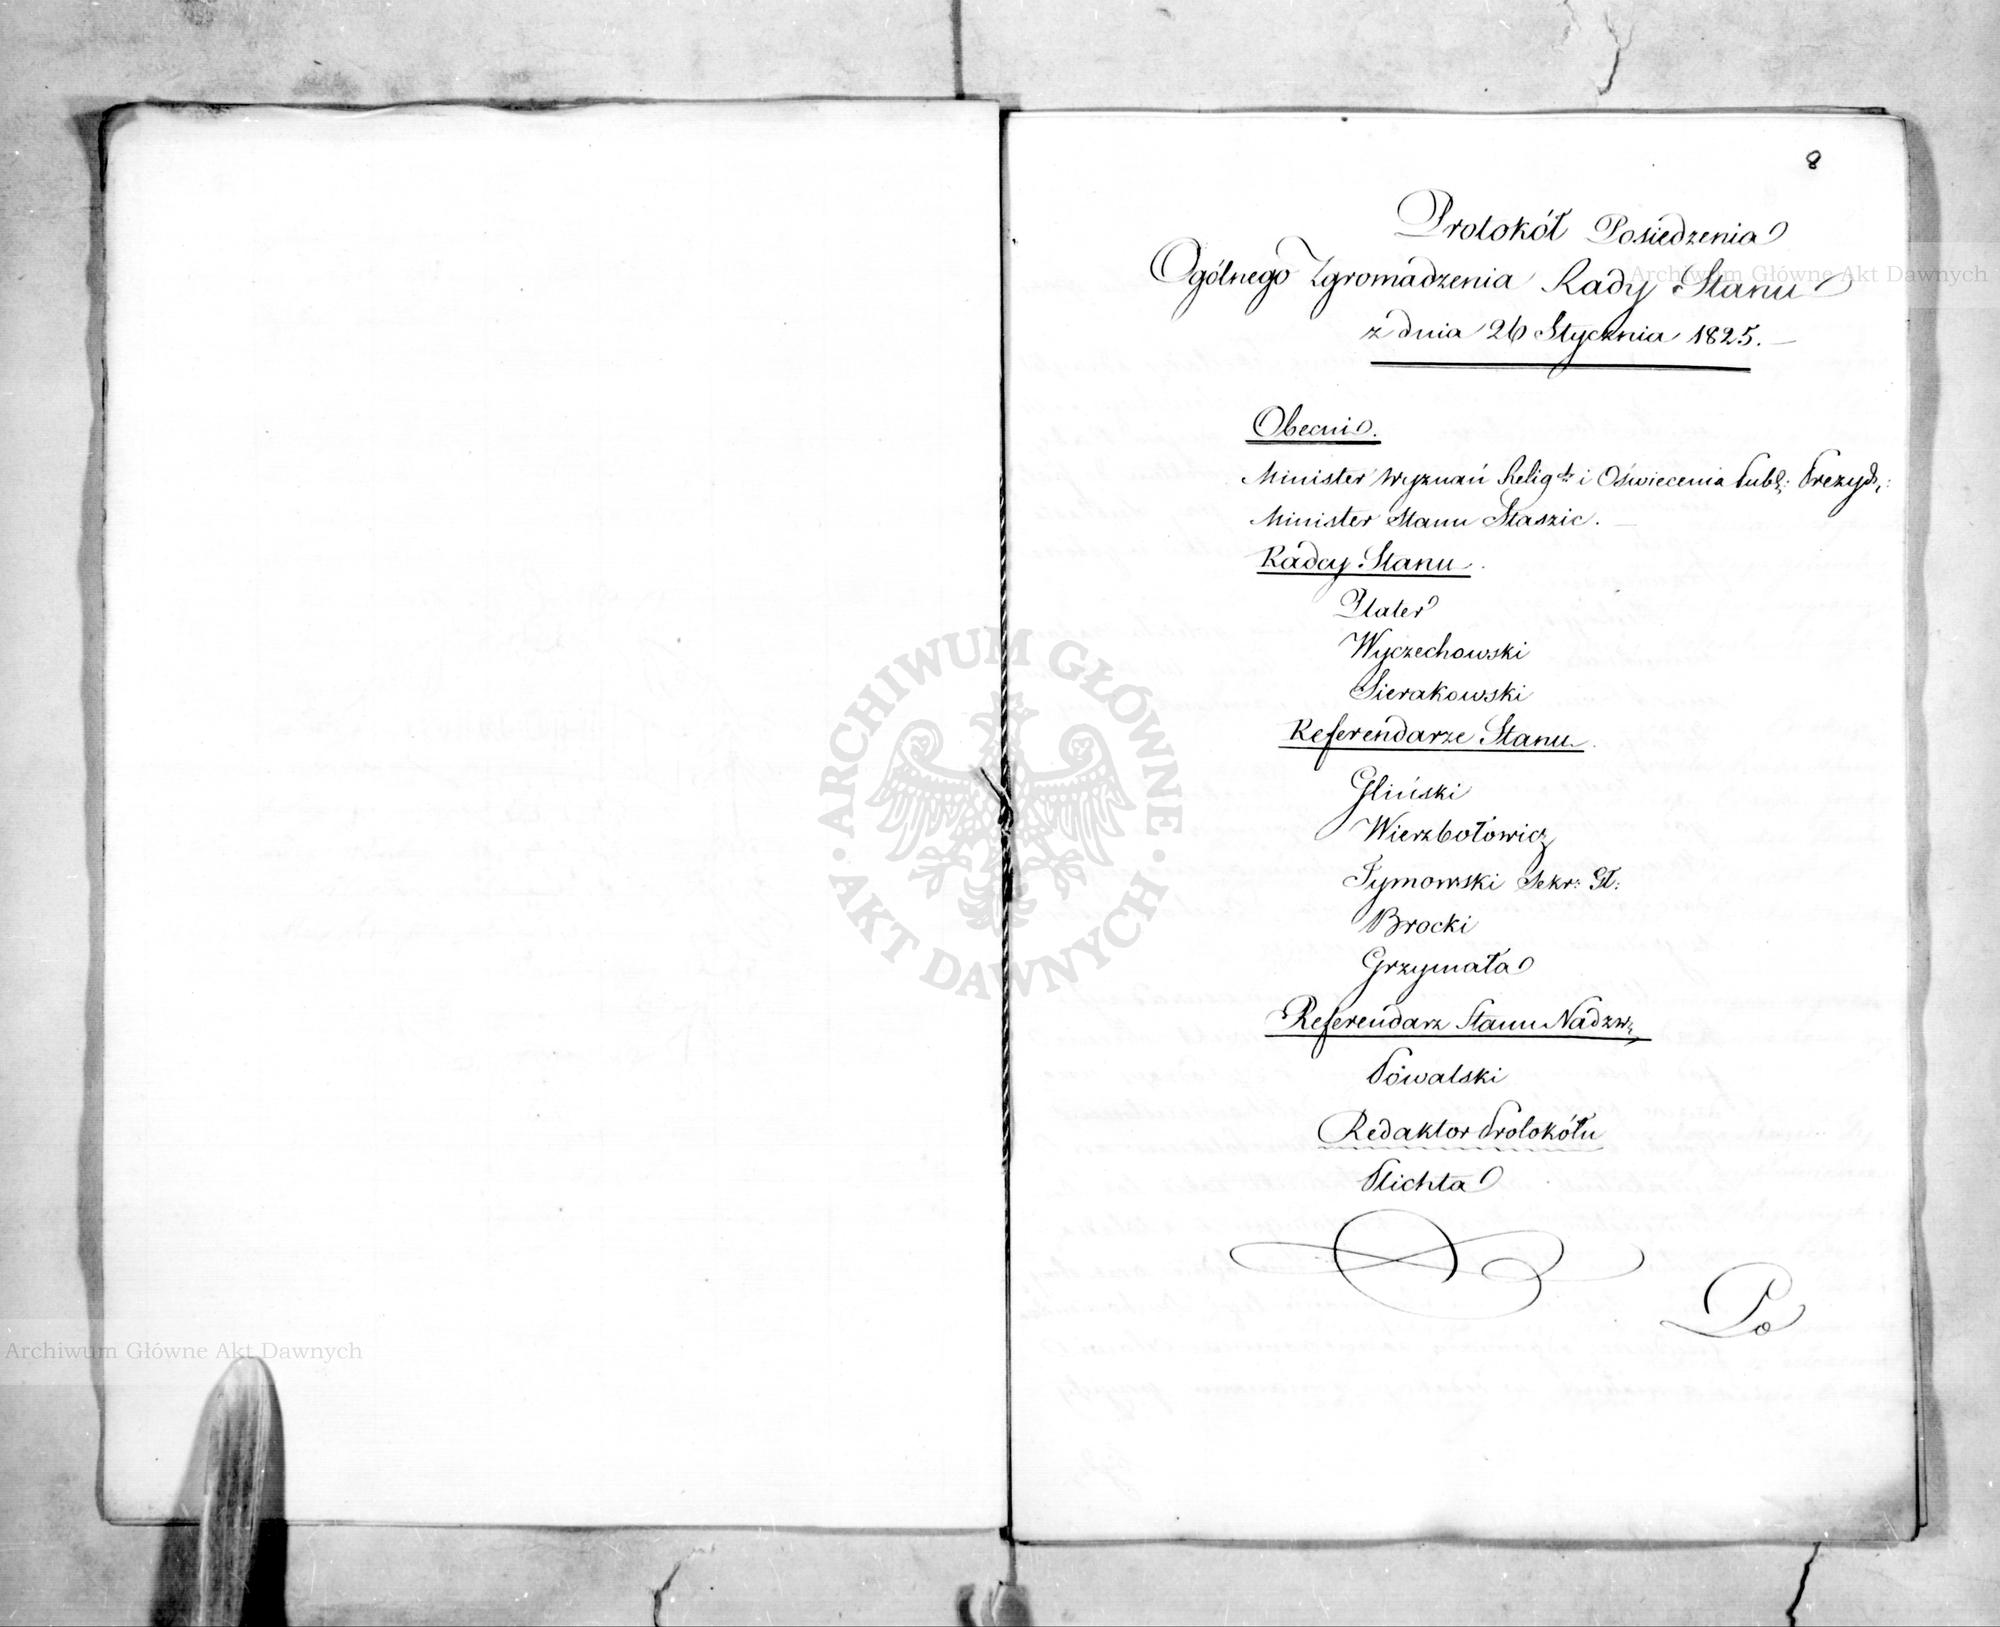 8
Protokół Posiedzenia
Ogólnego Zgromadzenia Rady Stanu
z dnia 26 Stycznia 1825. —
Obecni.
Minister Wyznań Relig: i Oświecenia Publ: Prezyd:
Minister Stanu Staszic. —
Radcy Stanu.
Plater
Wyczechowski
Sierakowski
Referendarze Stanu.
Gliński
Wierzbołowicz
Tymowski Sekr: Gł:
Brocki
Grzymała
Referendarz Stanu Nadzw:
Kowalski
Redaktor Protokółu
Plichta
Po
Archiwum Główne Akt Dawnych
ARCHIWUM GŁÓWNE
AKT DAWNYCH
Archiwum Główne Akt Dawnych